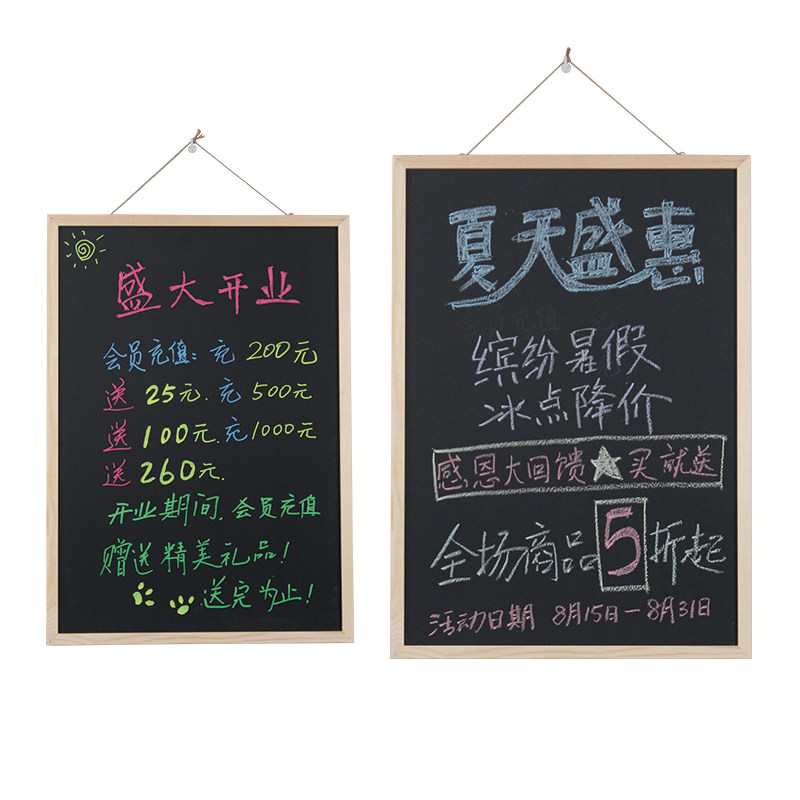 盛大开业
会员充值：充 200元
送 25元．充 500元
送 100元．充 1000元
送 260元．
开业期间，会员充值
赠送精美礼品！
送完为止！
夏天盛惠
缤纷暑假
冰点降价
感恩大回馈★买就送
全场商品5折起
活动日期 8月15日—8月31日